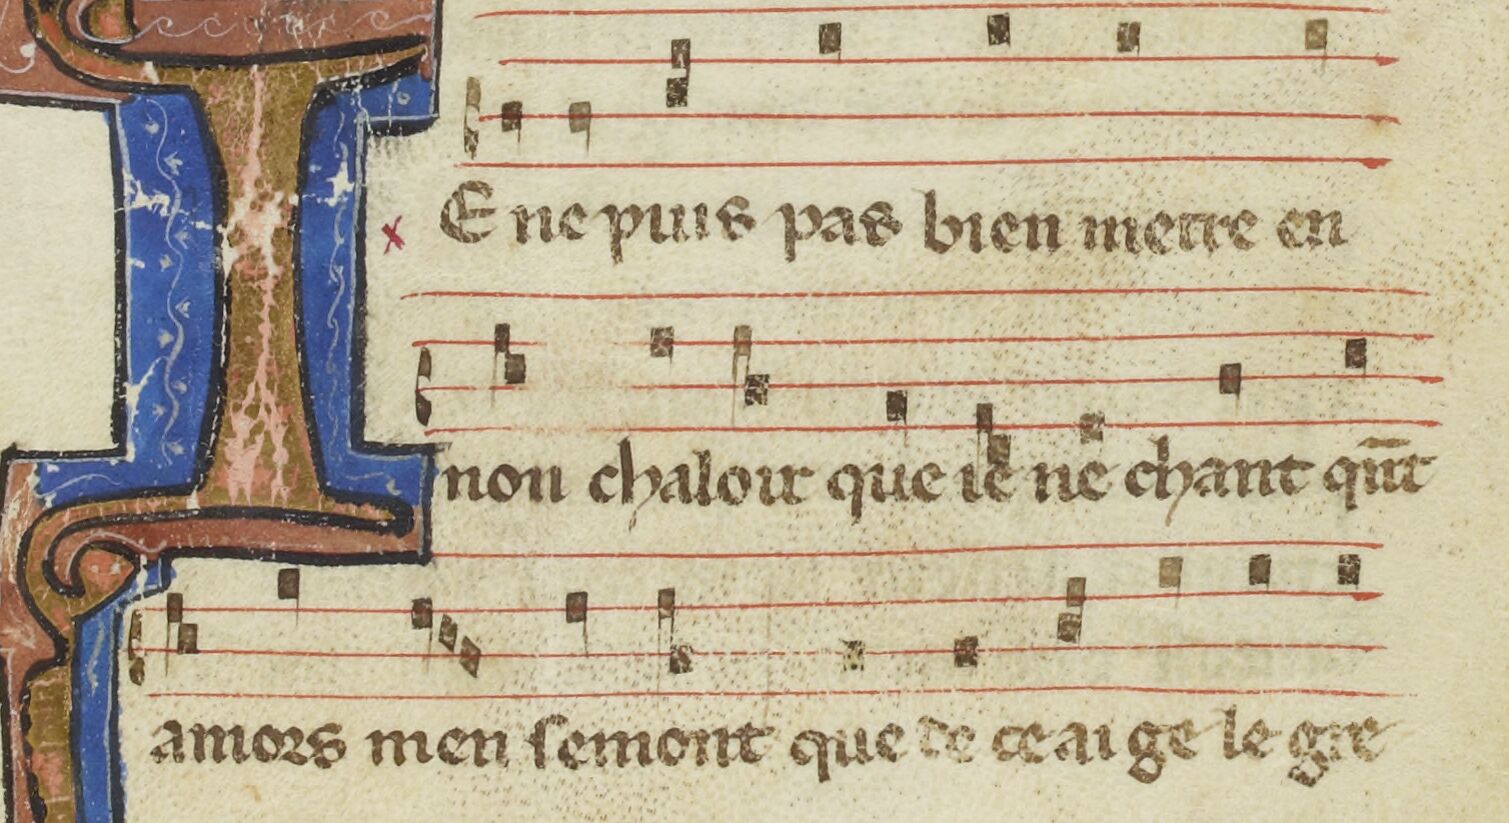 E ne puis pas bien metre en
non chaloir que ie ne chant qn̄t
amors men semont que de ce ai ge le gre